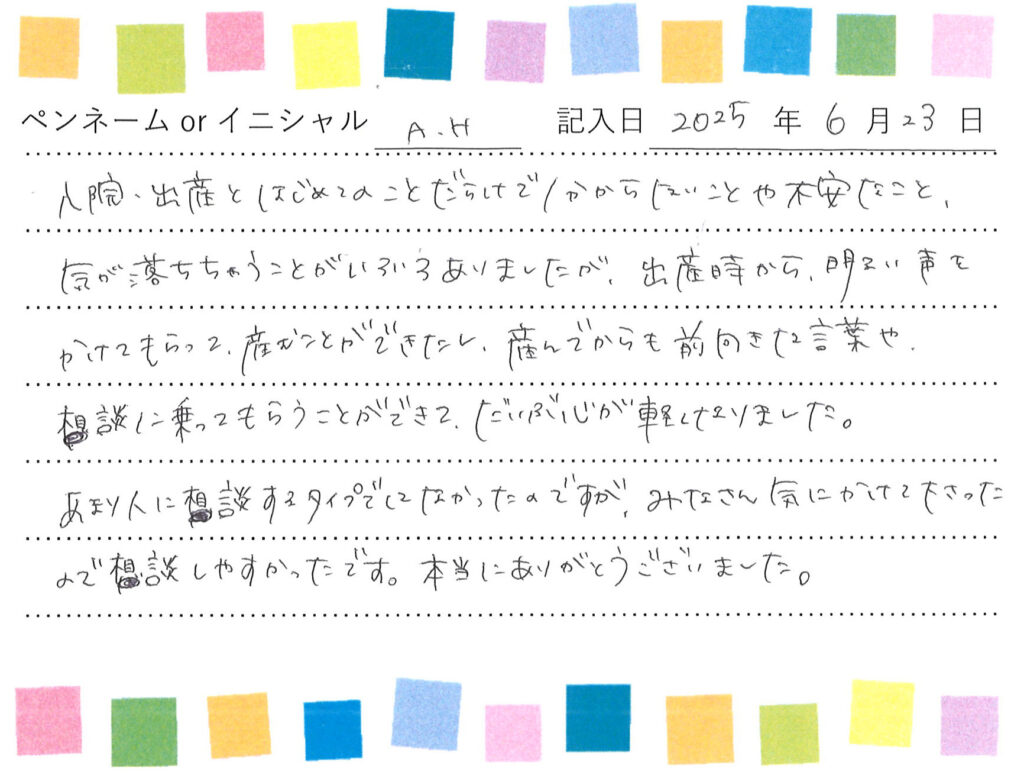 ペンネーム or イニシャル A.H 記入日 2025 年 6 月 23 日
入院、出産とはじめてのことだらけで分からないことや不安なこと、
気が落ちちゃうことがいろいろありましたが、出産時から、明るい声を
かけてもらって、産むことができたし、産んでからも前向きな言葉や、
相談に乗ってもらうことができて、だいぶ心が軽くなりました。
あまり人に相談するタイプではなかったのですが、みなさん気にかけて下さった
ので相談しやすかったです。本当にありがとうございました。